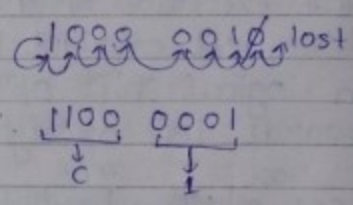 1000 0010 lost
1100 0001
C 1